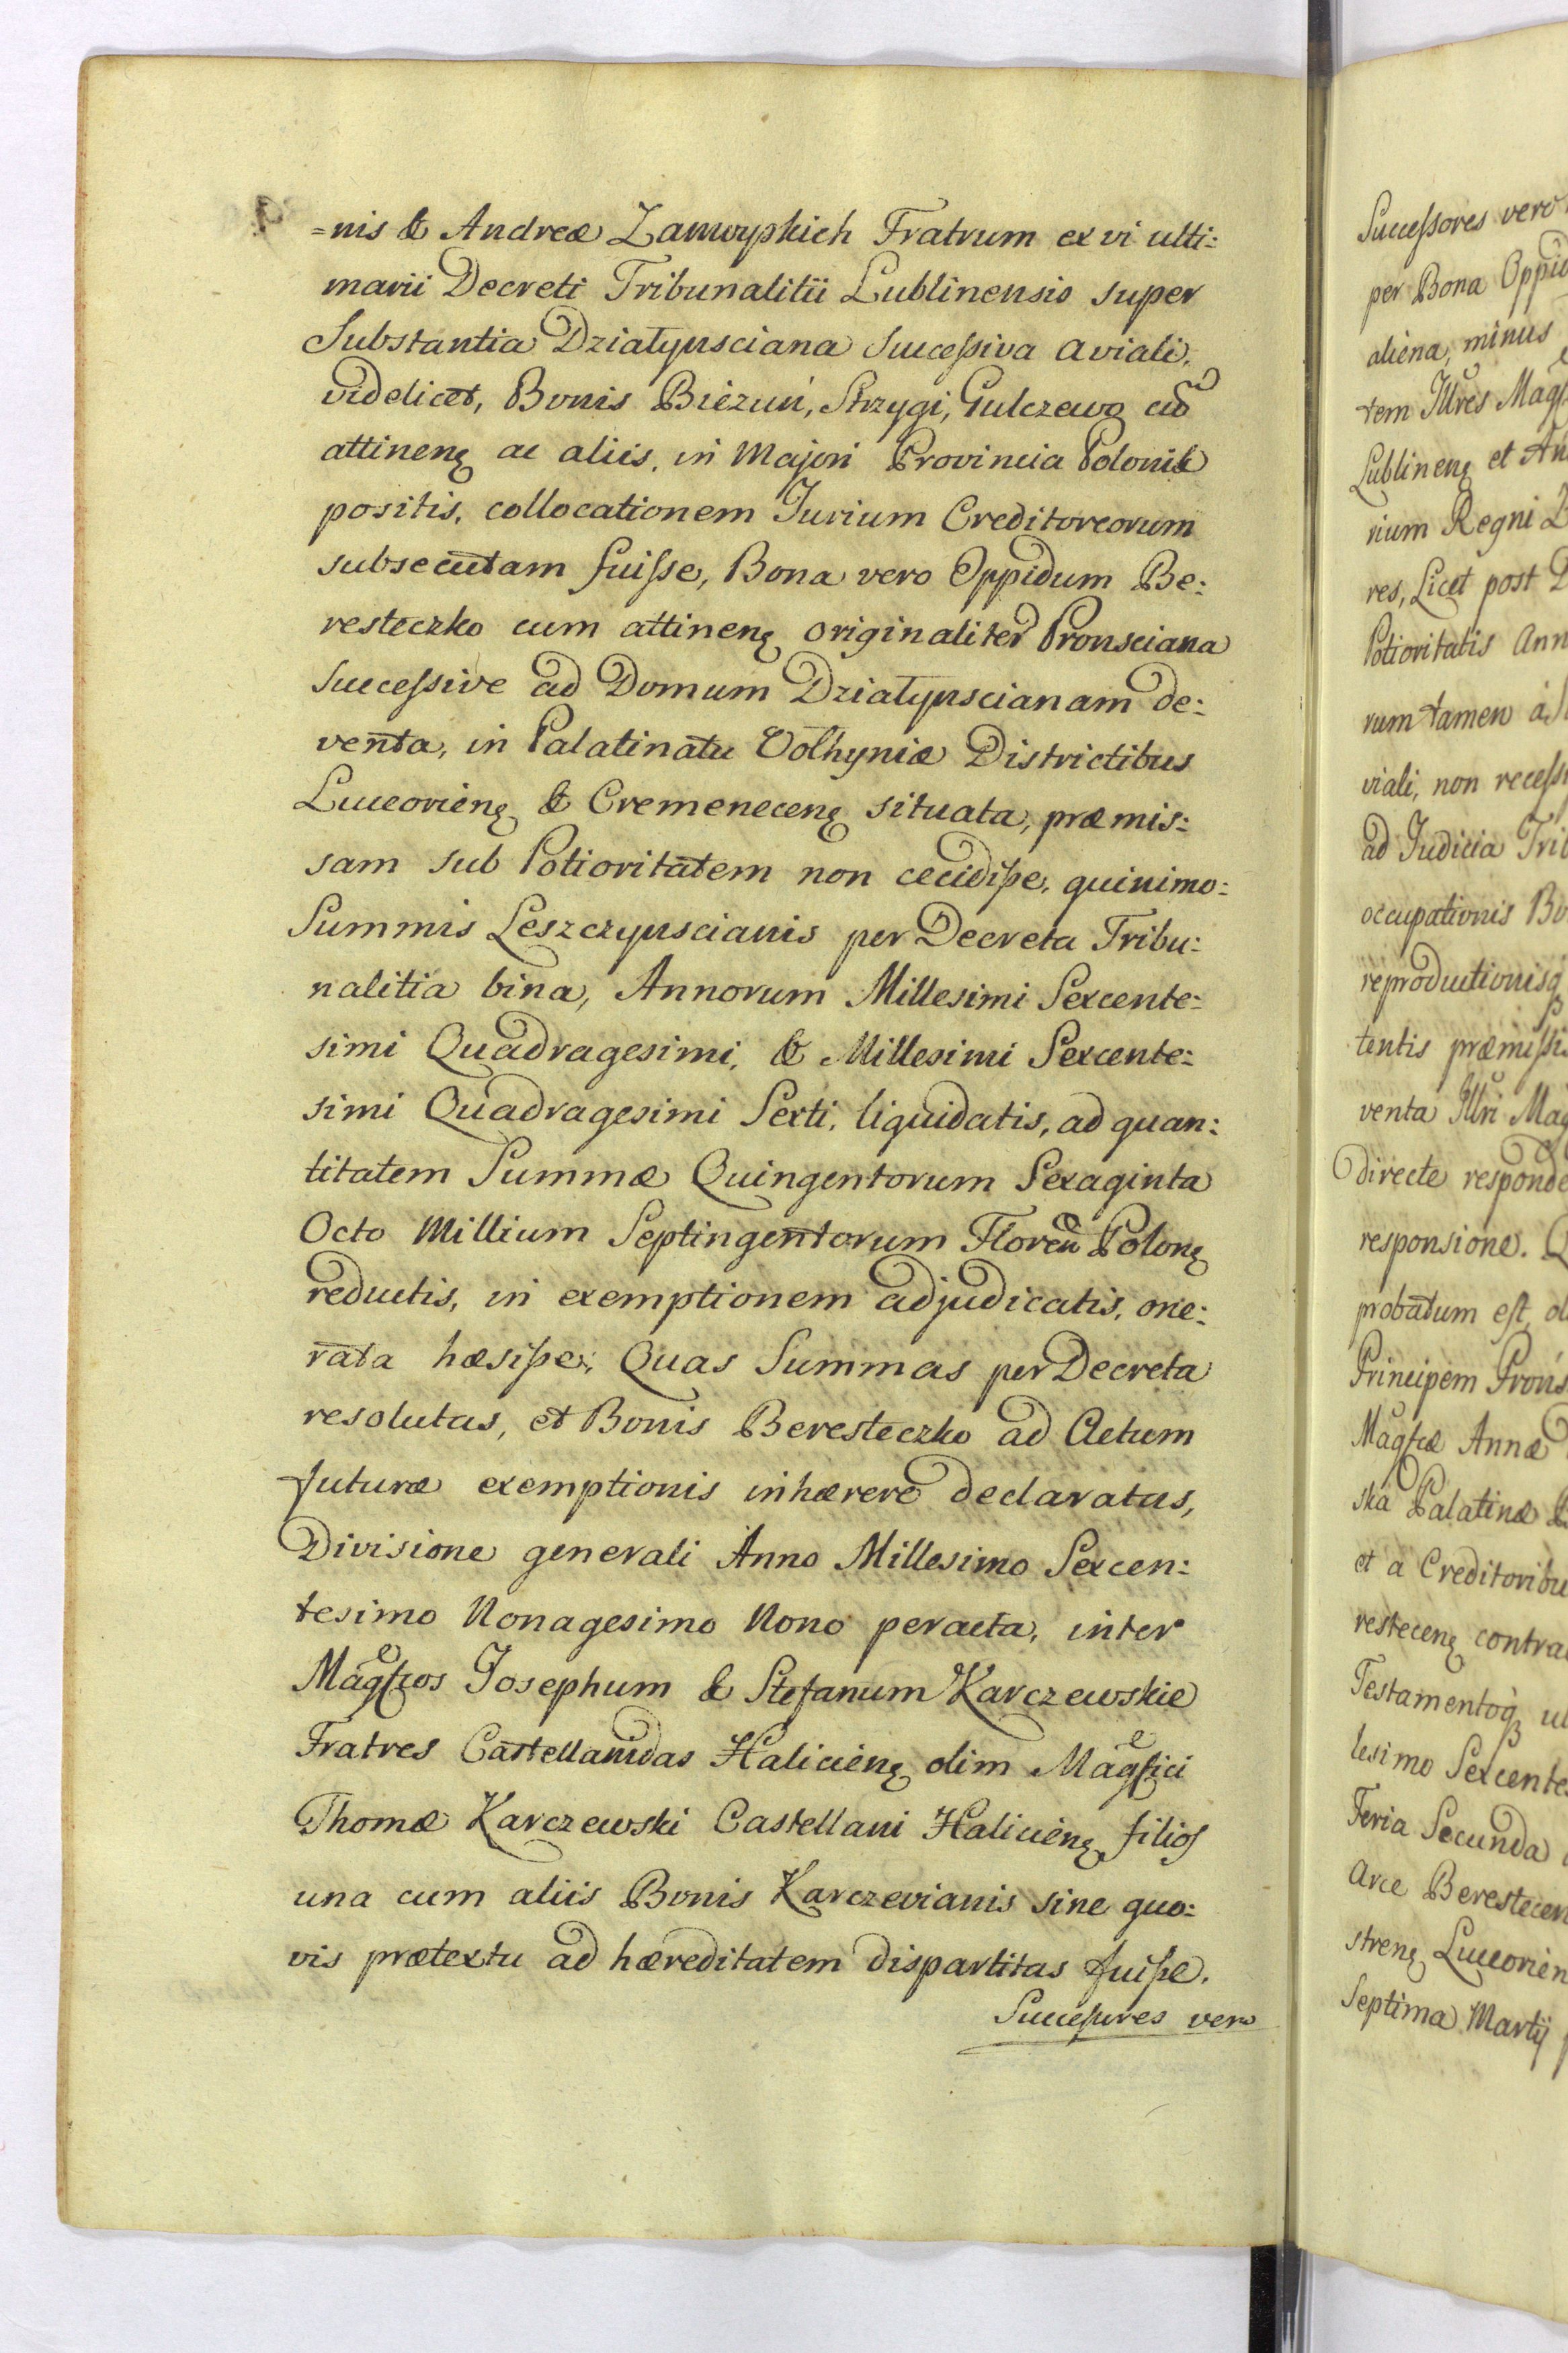 =nis & Andreæ Zamoyskich Fratrum ex vi ulti:
marii Decreti Tribunalitii Lublinensis super
Substantia Dziatynsciana Successiva aviali,
videlicet, Bonis Bieżuń, Strzygi, Gulczewo cũ
attinenę ac aliis, in Majori Provincia Poloniæ
positis, collocationem Jurium Creditoreorum
subsecutam fuisse, Bona vero Oppidum Be:
resteczko cum attinenę originaliter Pronsciana
Successive ad Domum Dziatynscianam de:
venta, in Palatinatu Volhyniæ Districtibus
Luceorienę & Cremenecenę situata, præmis:
sam sub Potioritatem non cecidisse, quinimo:
Summis Leszczynscianis per Decreta Tribu:
nalitia bina, Annorum Millesimi Sexcente:
simi Quadragesimi, & Millesimi Sexcente:
simi Quadragesimi Sexti, liquidatis, ad quan:
titatem Summæ Quingentorum Sexaginta
Octo Millium Septingentorum Floren Polonę
reductis, in exemptionem adjudicatis, one:
rata hæsisse; Quas Summas per Decreta
resolutas, et Bonis Beresteczko ad Actum
futuræ exemptionis inhærere declaratas,
Divisione generali Anno Millesimo Sexcen:
tesimo Nonagesimo Nono peracta, inter
Magfcos Josephum & Stefanum Karczewskie
Fratres Castellanidas Halicienę olim Magfici
Thomæ Karczewski Castellani Halicienę filios
una cum aliis Bonis Karczevianis sine quo:
vis prætextu ad hæreditatem dispartitas fuisse.
Successores vero
Successores vero
per Bona Oppid
aliena, minus
tem Illres Magf
Lublinenę et An
rium Regni
res, Licet post
Potioritatis Ann
rum tamen à
viali, non recess
ad Judicia Trib
occupationis Bo
reproductionisq
tentis præmissi
venta Illri Mag
directe responde
responsione.
probatum est, ol
Principem Prons
Magfcæ Annæ
ska Palatinæ
et a Creditoribu
restecenę contra
Testamentoq ul
lesimo Sexcentes
Feria Secunda
Arce Berestecen
strenę Luceorien
Septima Martij